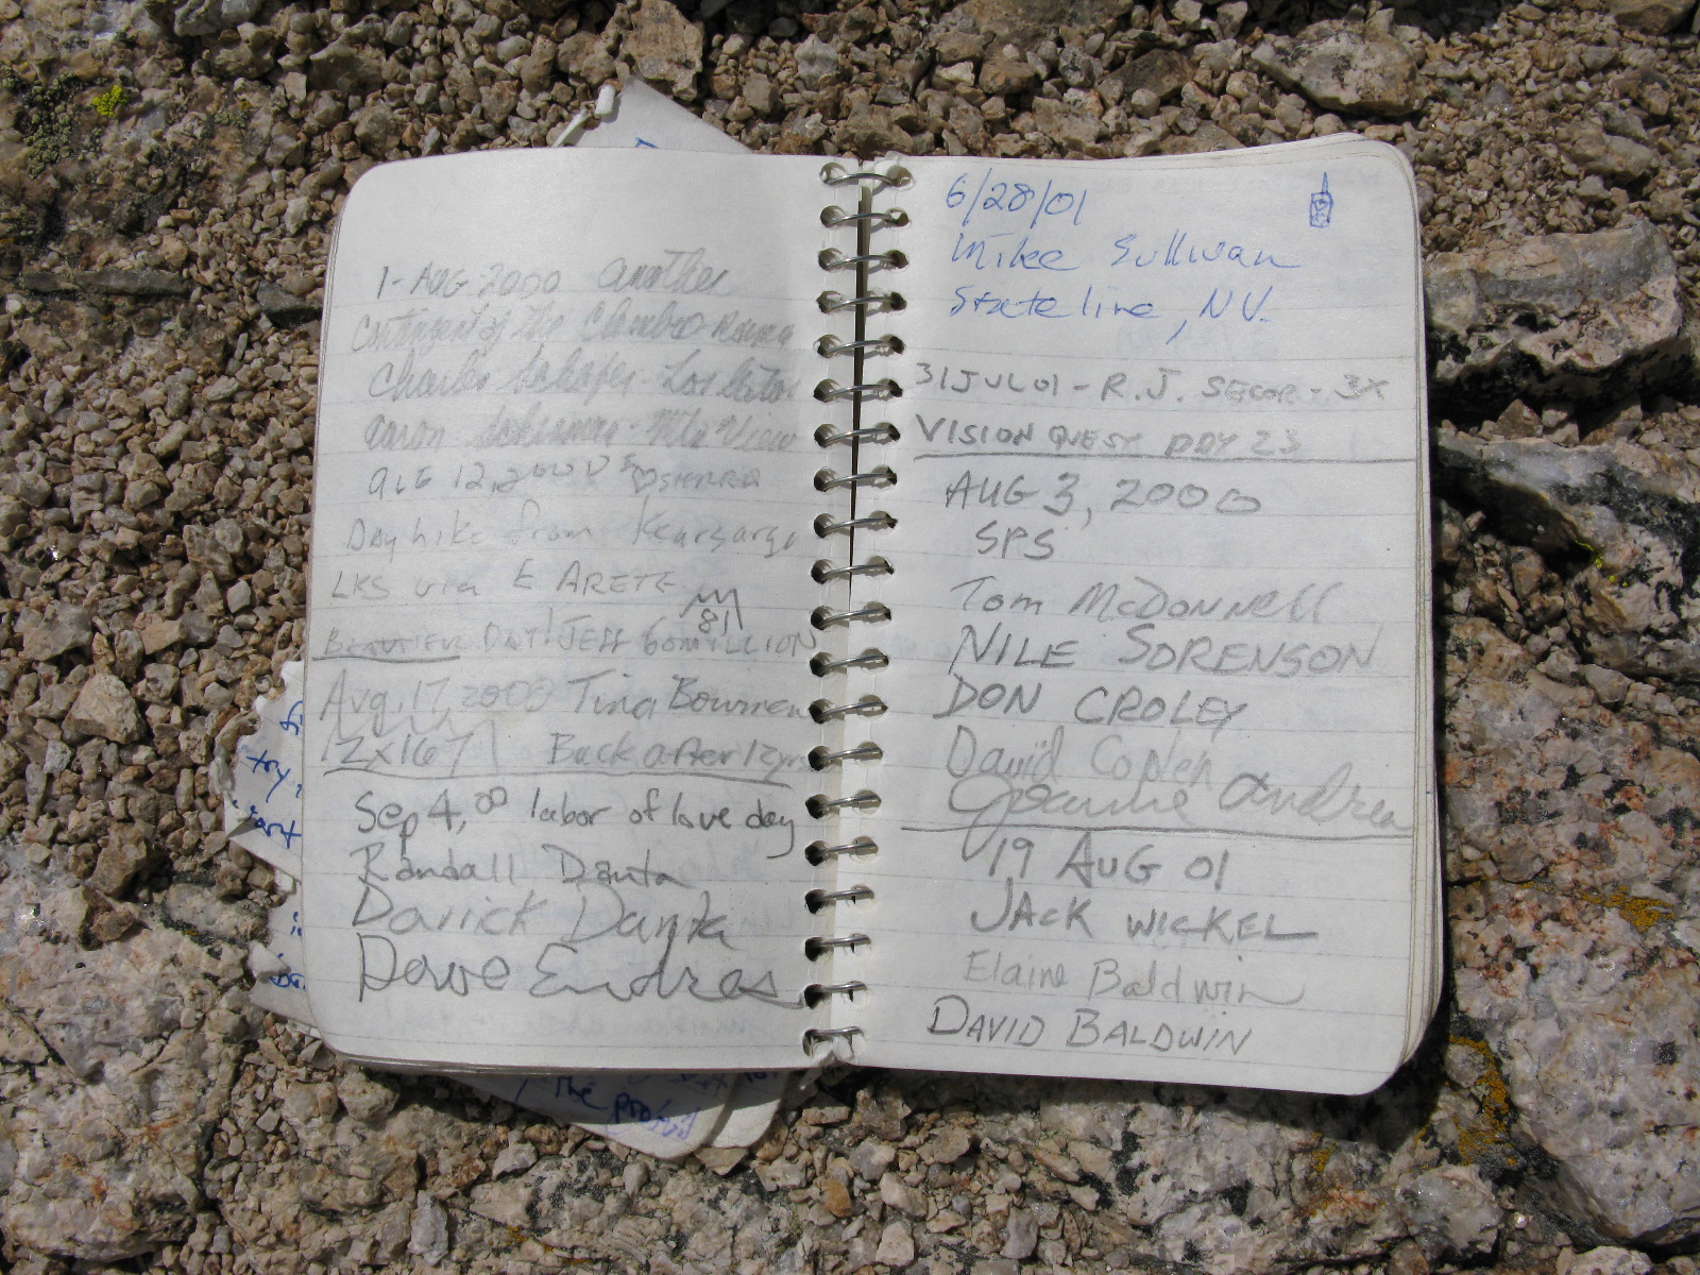 1-AUG-2000 another
contingent of the
Charles
Aaron
AUG 12, 2000 SIERRA
Day hike from Kearsarge
LKS via E ARETE
81
BEAUTIFUL DAY! JEFF GOMILLION
Aug, 17, 2000 Tina Bowman
12x167 Back after 12yrs
Sep 4, 00 labor of love day
Randall Danta
Darick Danta
Dave Endres
6/28/01
Mike Sullivan
Stateline, NV.
31JUL01 - R.J. SECOR - 3X
VISION QUEST DAY 23
AUG 3, 2000
SPS
Tom McDONNELL
NILE SORENSON
DON CROLEY
David Coplen
Jeanine Andrea
19 AUG 01
JACK WICKEL
Elaine Baldwin
DAVID BALDWIN
try
The